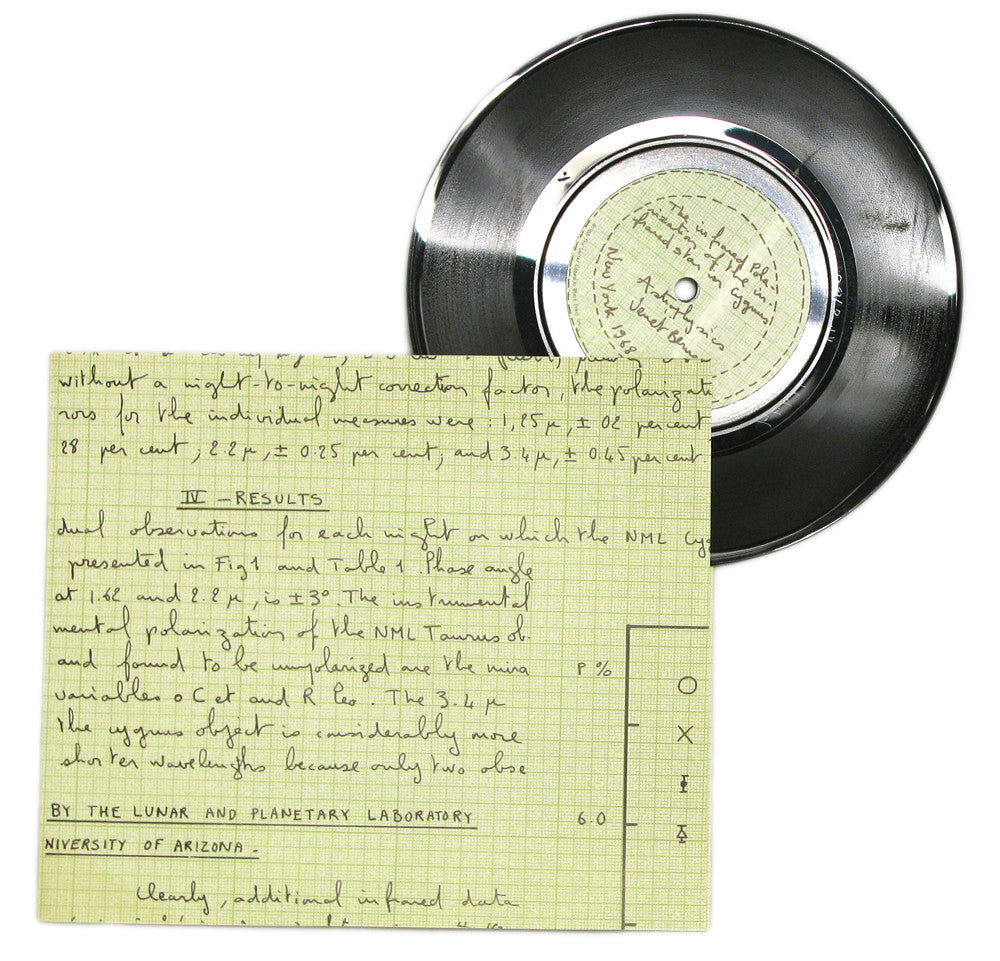 The infrared Pola-
rization of the in-
frared star in Cygnus
Astrophysics
Venet Bern
New York 1968
without a night-to-night correction factor, the polarizati
rors for the individual measures were : 1,25 µ, ± 02 percent
28 per cent ; 2.2 µ, ± 0.25 per cent; and 3.4 µ, ± 0.45 per cent.
IV - RESULTS
dual observations for each night on which the NML Cyg
presented in Fig 1 and Table 1. Phase angle
at 1.62 and 2.2 µ, is ± 3°. The instrumental
mental polarization of the NML Taurus ob.
and found to be unpolarized are the mira
variables o Cet and R Leo. The 3.4 µ
the cygnus object is considerably more
shorter wavelengths because only two obse
P %
6.0
BY THE LUNAR AND PLANETARY LABORATORY
NIVERSITY OF ARIZONA -
Clearly, additional infrared data